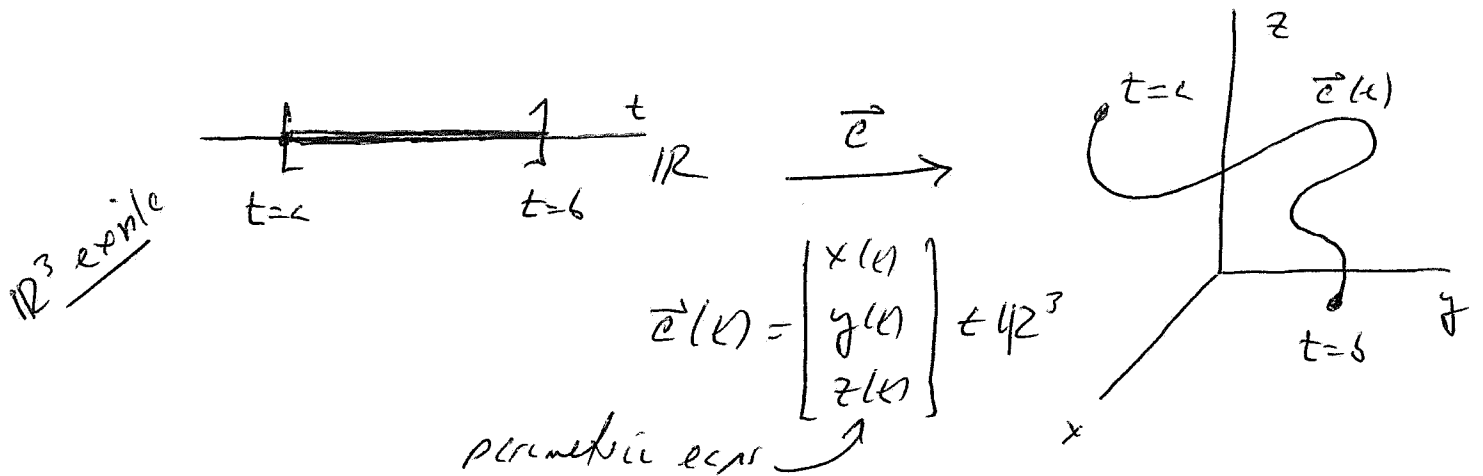 ℝ³ example
t=a
t=b
t
ℝ
c⃗
c⃗(t) = [ x(t)
y(t)
z(t) ] ∈ ℝ³
parametric eqns
z
t=a
c⃗(t)
y
t=b
x